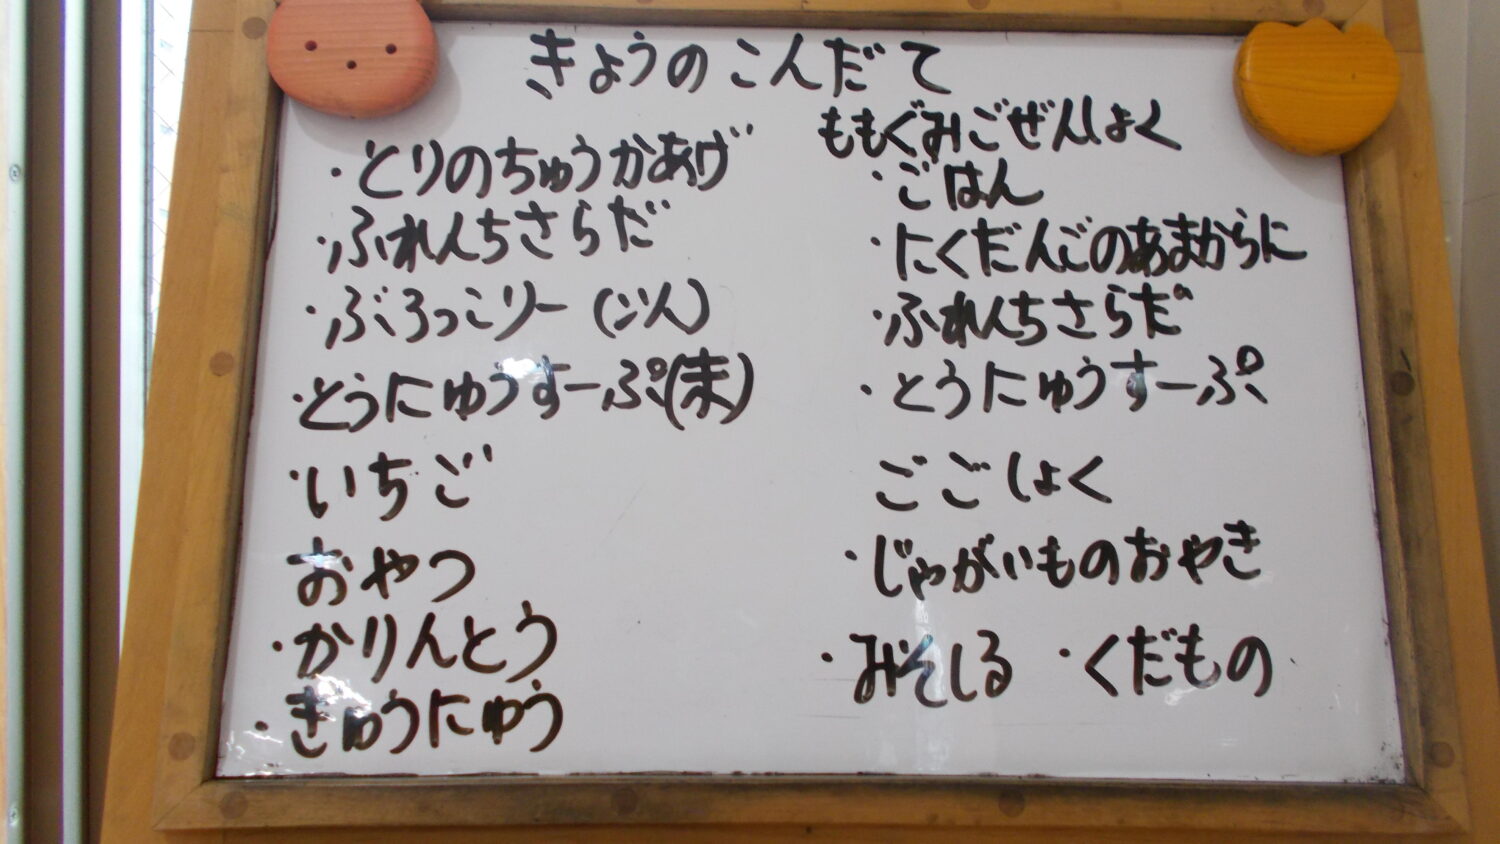 きょうのこんだて
・とりのちゅうかあげ
・ふれんちさらだ
・ぶろっこりー
・とうにゅうすーぷ
・いちご
おやつ
・かりんとう
・ぎゅうにゅう
ももぐみごぜんしょく
・ごはん
・にくだんごのあまからに
・ふれんちさらだ
・とうにゅうすーぷ
ごごしょく
・じゃがいものおやき
・みそしる ・くだもの